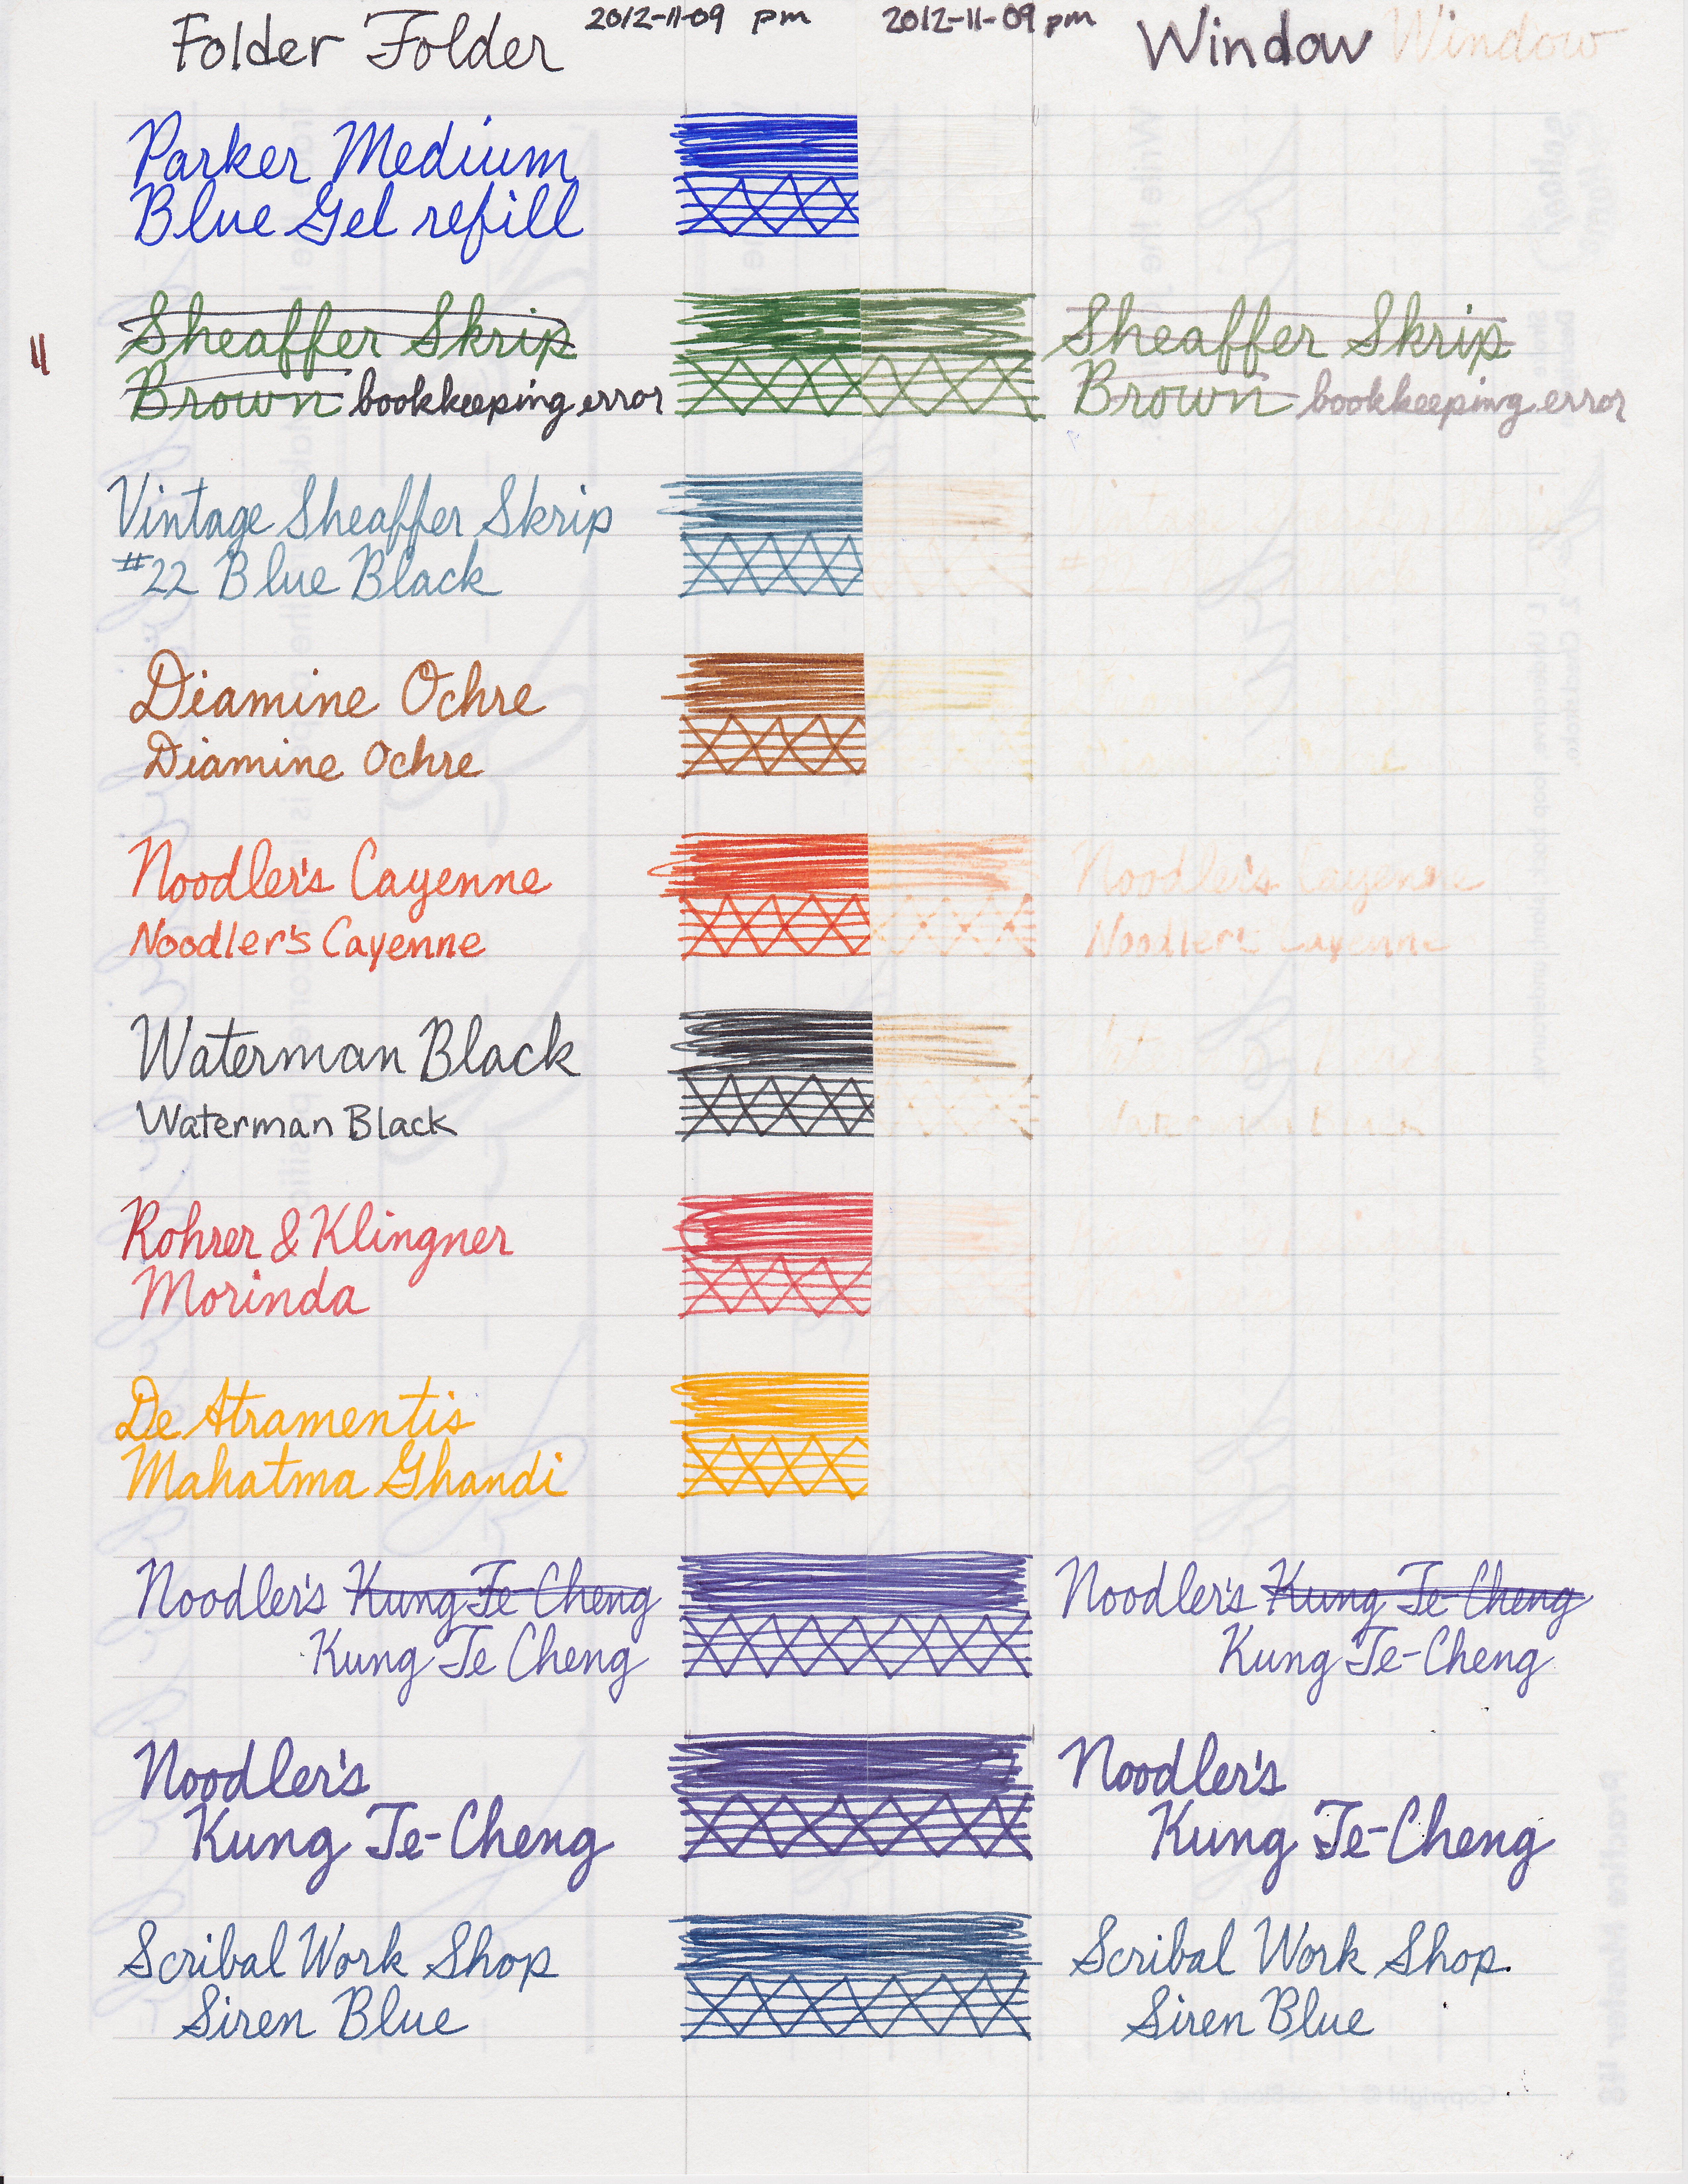 Folder Folder 2012-11-09 pm 2012-11-09 pm Window Window
Parker Medium
Blue Gel refill
Sheaffer Skrip Sheaffer Skrip
11
Brown bookkeeping error Brown bookkeeping error
Vintage Sheaffer Skrip
#22 Blue Black #22
Diamine Ochre
Diamine Ochre
Noodler's Cayenne Noodler's Cayenne
Noodler's Cayenne Noodler's Cayenne
Waterman Black
Waterman Black Waterman Black
Rohrer & Klingner
Morinda
De Atramentis
Mahatma Ghandi
Noodler's Kung Te-Cheng Noodler's Kung Te-Cheng
Kung Te Cheng Kung Te-Cheng
Noodler's Noodler's
Kung Te-Cheng Kung Te-Cheng
Scribal Work Shop Scribal Work Shop.
Siren Blue Siren Blue